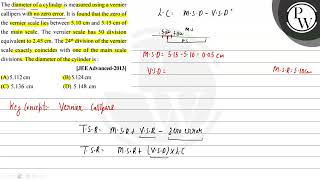 The diameter of a cylinder is measured using a vernier
callipers with no zero error. It is found that the zero of
the vernier scale lies between 5.10 cm and 5.15 cm of
the main scale. The vernier scale has 50 division
equivalent to 2.45 cm. The 24th division of the vernier
scale exactly coincides with one of the main scale
divisions. The diameter of the cylinder is :
[JEE Advanced-2013]
(A) 5.112 cm (B) 5.124 cm
(C) 5.136 cm (D) 5.148 cm
Key Concept:- Vernier Callipers
T.S.R = M.S.R + V.S.R - Zero error
T.S.R = M.S.R + (V.S.D) x L.C
L.C = M.S.D - V.S.D
M.S.D = 5.15 - 5.10 = 0.05 cm
V.S.D =
M.S.R = 5.10cm
PW